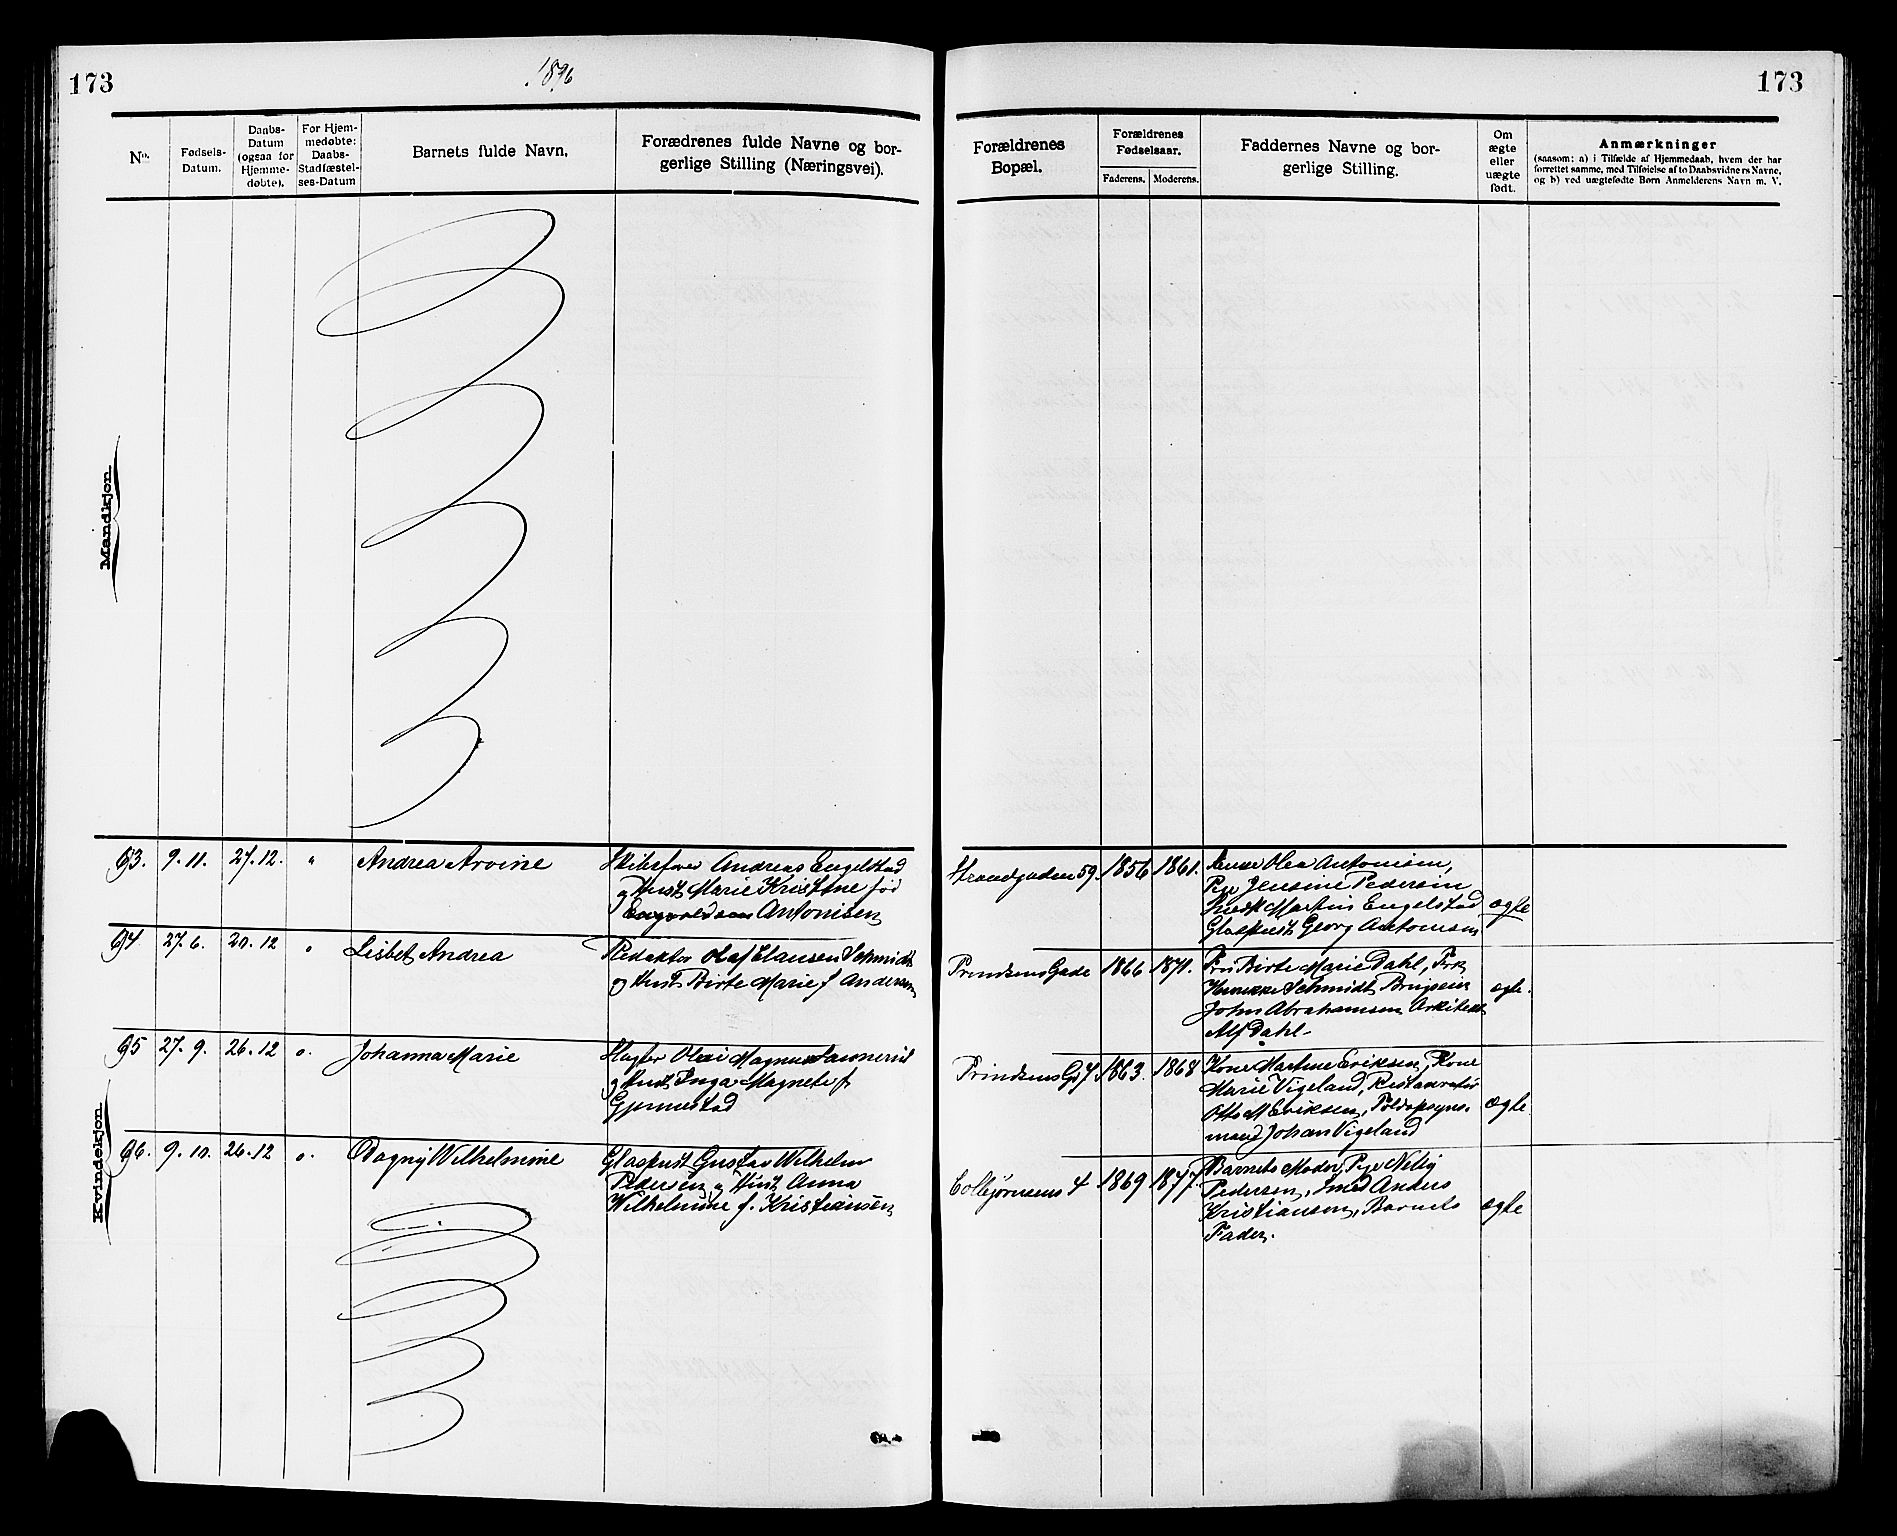 173
1896
173
No.
Fødsels-
Datum.
Daabs-
Datum
(ogsaa for
Hjemme-
døbte).
For Hjem-
medøbte:
Daabs-
Stadfæstel-
ses-Datum
Barnets fulde Navn.
Forædrenes fulde Navne og bor-
gerlige Stilling (Næringsvei).
Forældrenes
Bopæl.
Forældrenes
Fødselsaar.
Faderens. Moderens.
Faddernes Navne og bor-
gerlige Stilling.
Om
ægte
eller
uægte
født.
Anmærkninger
(saasom: a) i Tilfælde af Hjemmedaab, hvem der har
forrettet samme, med Tilføielse af to Daabsvidners Navne,
og b) ved uægtefødte Børn Anmelderens Navn m. V.
Mandkjøn
Kvindekjøn
93. 9. 11. 27. 12. " Andrea Arvine
Skibsfører Andreas Engelstad
og Hust Marie Kristine fød
Antonisen
Strandgaden 59. 1856 1861.
Olea Antonisen,
Pge Jensine Pedersen
Martin Engelstad
Georg Antonisen
ægte
94. 27. 6. 20. 12 " Lisbet Andrea
Redaktør Olaf Clausen Schmidt
og Hust Birte Marie f Andersen
Prindsens Gade 1866 1871.
Fru Birte Marie Dahl, Frk
Schmidt
John Abrahamsen Arkitekt
Alf Dahl.
ægte.
95 27. 9. 26. 12 o. Johanna Marie
Slagter Olai Magnus
og Hust Inga Magnete f.
Gjermestad
Prindsens Gd 7 1863. 1868
Kone Martine Eriksen, Kone
Marie Vigeland, Restauratør
Otto M Eriksen, Toldopsyns-
mand Johan Vigeland
ægte
96. 9. 10. 26. 12 o. Dagny Wilhelmine
Gustav Wilhelm
Pedersen og Hust Anna
Wilhelmine f. Kristiansen
Colbjørnsens 4 1869 1877.
Barnets Moder, Pge Nelly
Pedersen, Smed Anders
Kristiansen, Barnets
Fader.
ægte